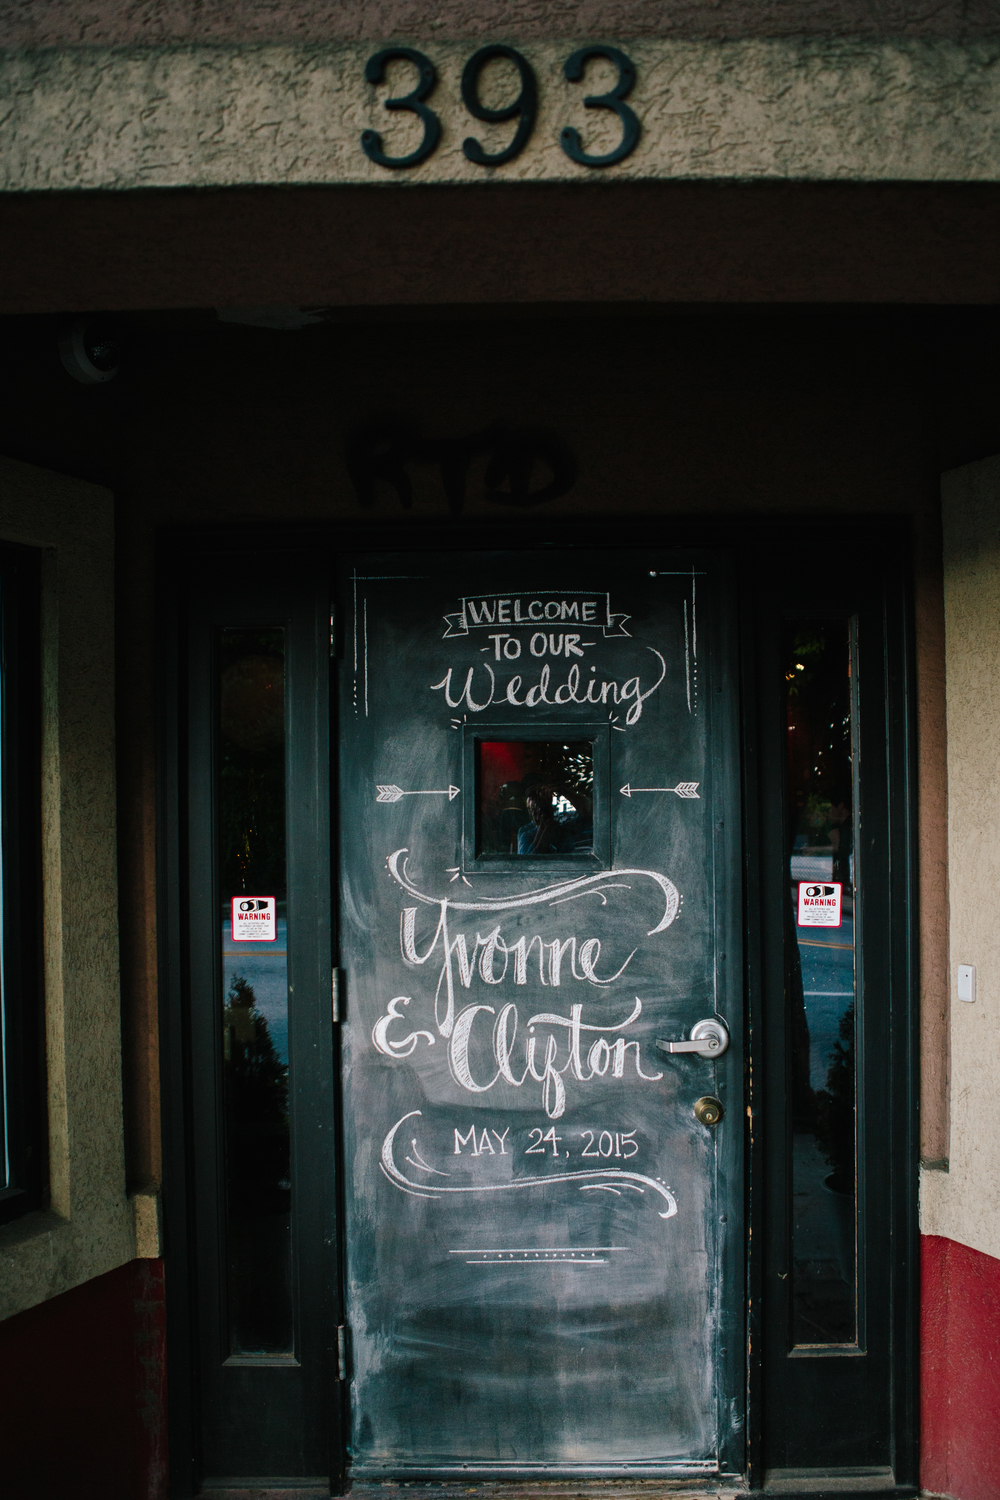 393
RTD
WELCOME
-TO OUR-
Wedding
WARNING
WARNING
Yvonne
& Clifton
MAY 24, 2015